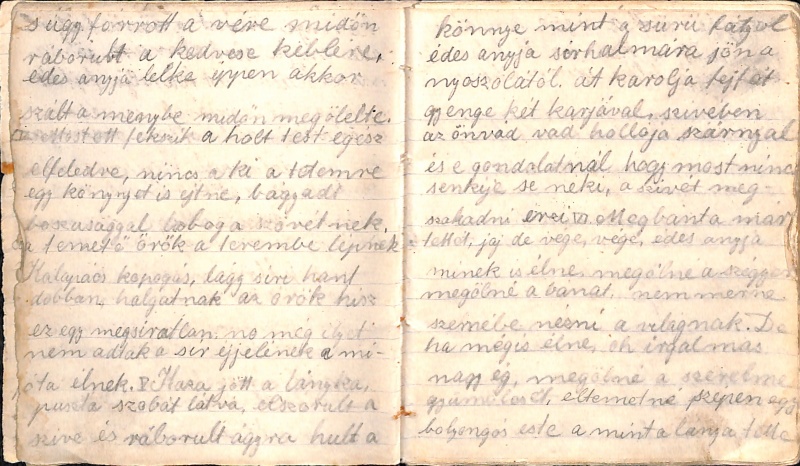 s úgy forrott a vére midőn
ráborult a kedvese keblére,
édes anyja lelke éppen akkor
szált a menybe midőn megölelte.
Most ott fekszik a holt test egész
elfeledve, nincs a ki a tetemre
egy könnyet is ejtne, bágyadt
boszusággal lobog a szövétnek,
a temető örök a terembe lépnek
Kalapács kopogás, lágy siri hant
dobban, halgatnak az örök hisz
ez egy megsiratlan, no még ilyet
nem adtak a sir éjjelének a mi-
óta élnek. Haza jött a lányka,
puszta szobát látva, elszorult a
szive és ráborult ágyra hult a
könnye mint a sürü fátyol
édes anyja sirhalmára jön a
nyoszolától. át karolja fejfát
gyenge két karjával, szivében
az önvád vad hollója szárnyal
és e gondalatnál hogy most nincs
senkije se neki, a szivét meg-
szakadni érzi Megbánta már
tettét, jaj de vége, vége, édes anyja
minek is élne, megölné a szégyen
megölné a bánat, nem merne
szemébe nézni a világnak. De
ha mégis élne, oh irgalmas
nagy ég, megölné a szerelme
gyümölcsét, eltemetné szépen egy
bolyongós este a mint a lánya tette